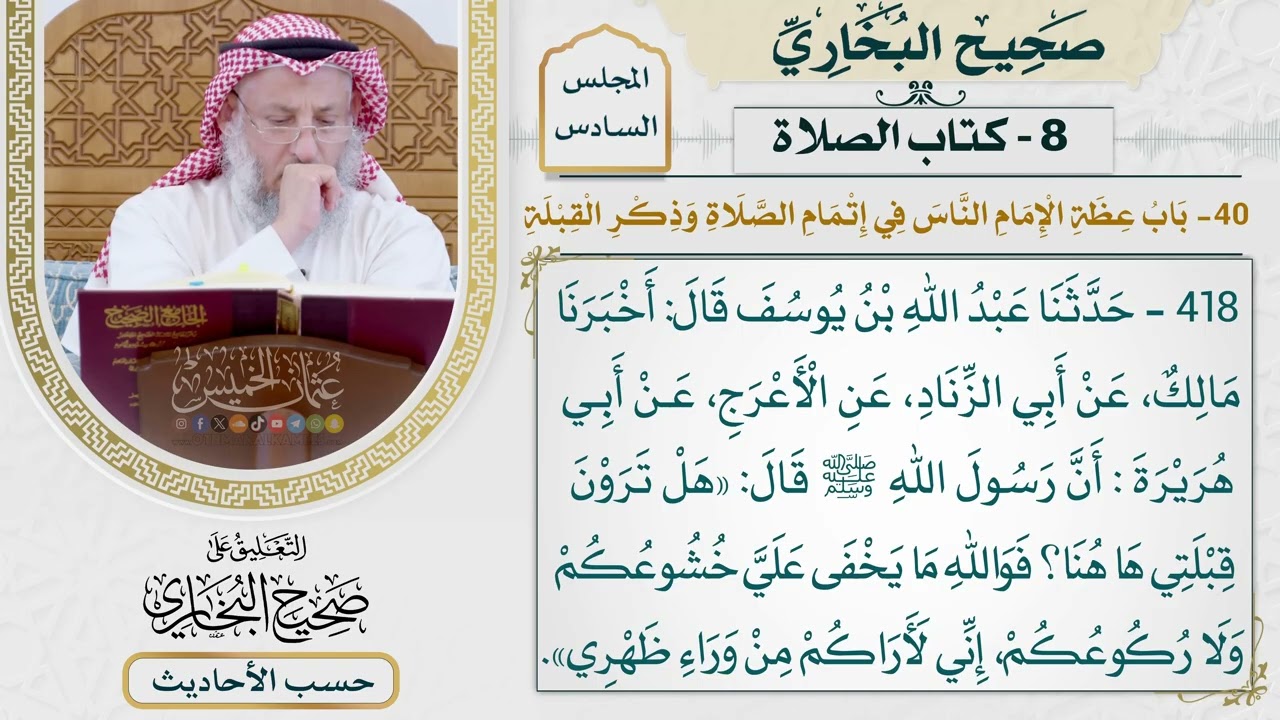 صَحِيح البُخَارِيِّ
8 - كتاب الصلاة
المجلس
السادس
40- بَابُ عِظَةِ الْإِمَامِ النَّاسَ فِي إِتْمَامِ الصَّلَاةِ وَذِكْرِ الْقِبْلَةِ
418 - حَدَّثَنَا عَبْدُ اللهِ بْنُ يُوسُفَ قَالَ: أَخْبَرَنَا
مَالِكٌ، عَنْ أَبِي الزِّنَادِ، عَنِ الْأَعْرَجِ، عَنْ أَبِي
هُرَيْرَةَ : أَنَّ رَسُولَ اللهِ ﷺ قَالَ: «هَلْ تَرَوْنَ
قِبْلَتِي هَا هُنَا؟ فَوَاللهِ مَا يَخْفَى عَلَيَّ خُشُوعُكُمْ
وَلَا رُكُوعُكُمْ، إِنِّي لَأَرَاكُمْ مِنْ وَرَاءِ ظَهْرِي».
الجامع الصحيح
عُثمان الخميس
التَّعْلِيقُ عَلَى
صَحِيحُ البُخَارِي
حسب الأحاديث